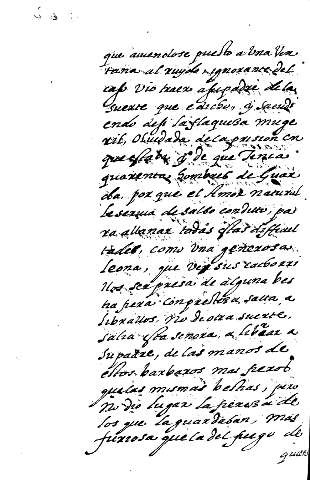 que auiendose puesto a Una Ven
tana al ruydo ignorante del
caso Vio traer a su padre de la
suerte que e dicho, y sacudi
endo desi la flaqueza muge
ril, Oluidada de la prision en
que estaba y de que Tenia
quarenta hombres de Guar
da. porque el Amor natural
le seruia de salbo conduto, pa
ra allanar todas estas dificul
tades, como Una generosa
leona, que ve sus cachorri
llos ser presa de alguna bes
tia fiera con presteza, salta, a
librallos. No de otra suerte,
salia esta señora, a librar a
su padre, de las manos de
estos barbaros mas fieros
que las mismas bestias, pero
No dio lugar la fiereza de
los que la guardaban, mas
furiosa que la del fuego de